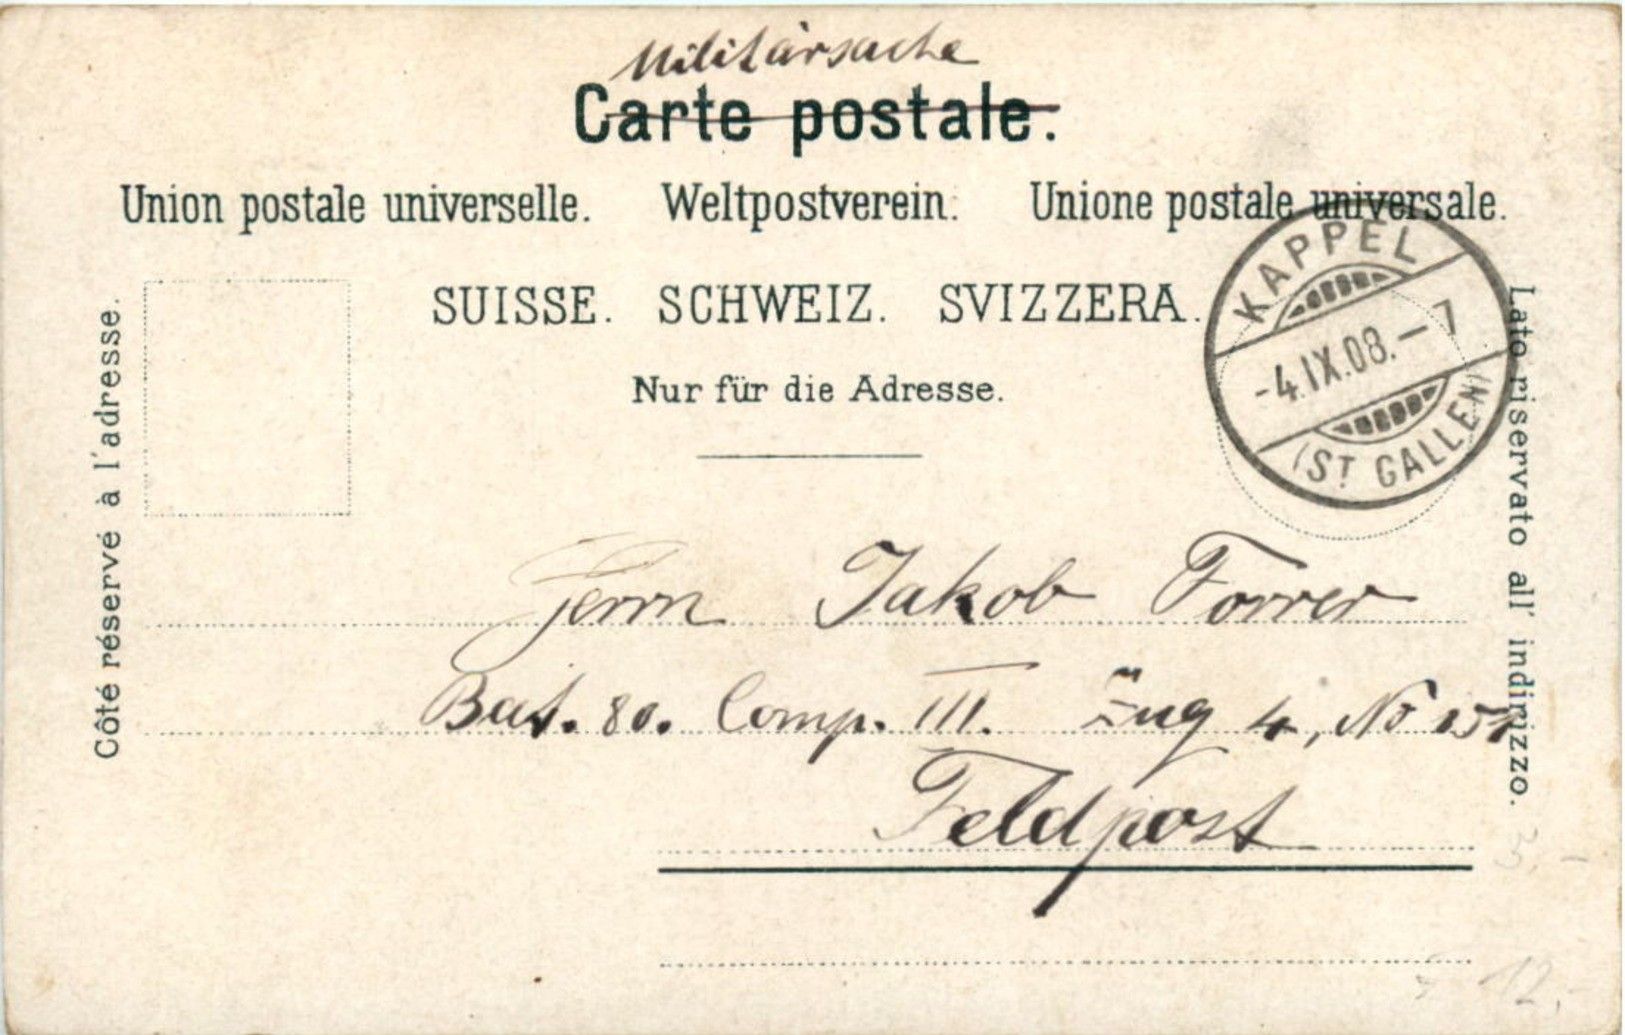 Militärsache
Carte postale.
Union postale universelle. Weltpostverein. Unione postale universale.
SUISSE. SCHWEIZ. SVIZZERA.
Nur für die Adresse.
Côté réservé à l'adresse.
Lato riservato all' indirizzo.
KAPPEL
-4.IX.08.-7
(ST GALLEN)
Herrn Jakob Forrer
Bat. 80. Comp. III. Zug 4, No
Feldpost
12.-